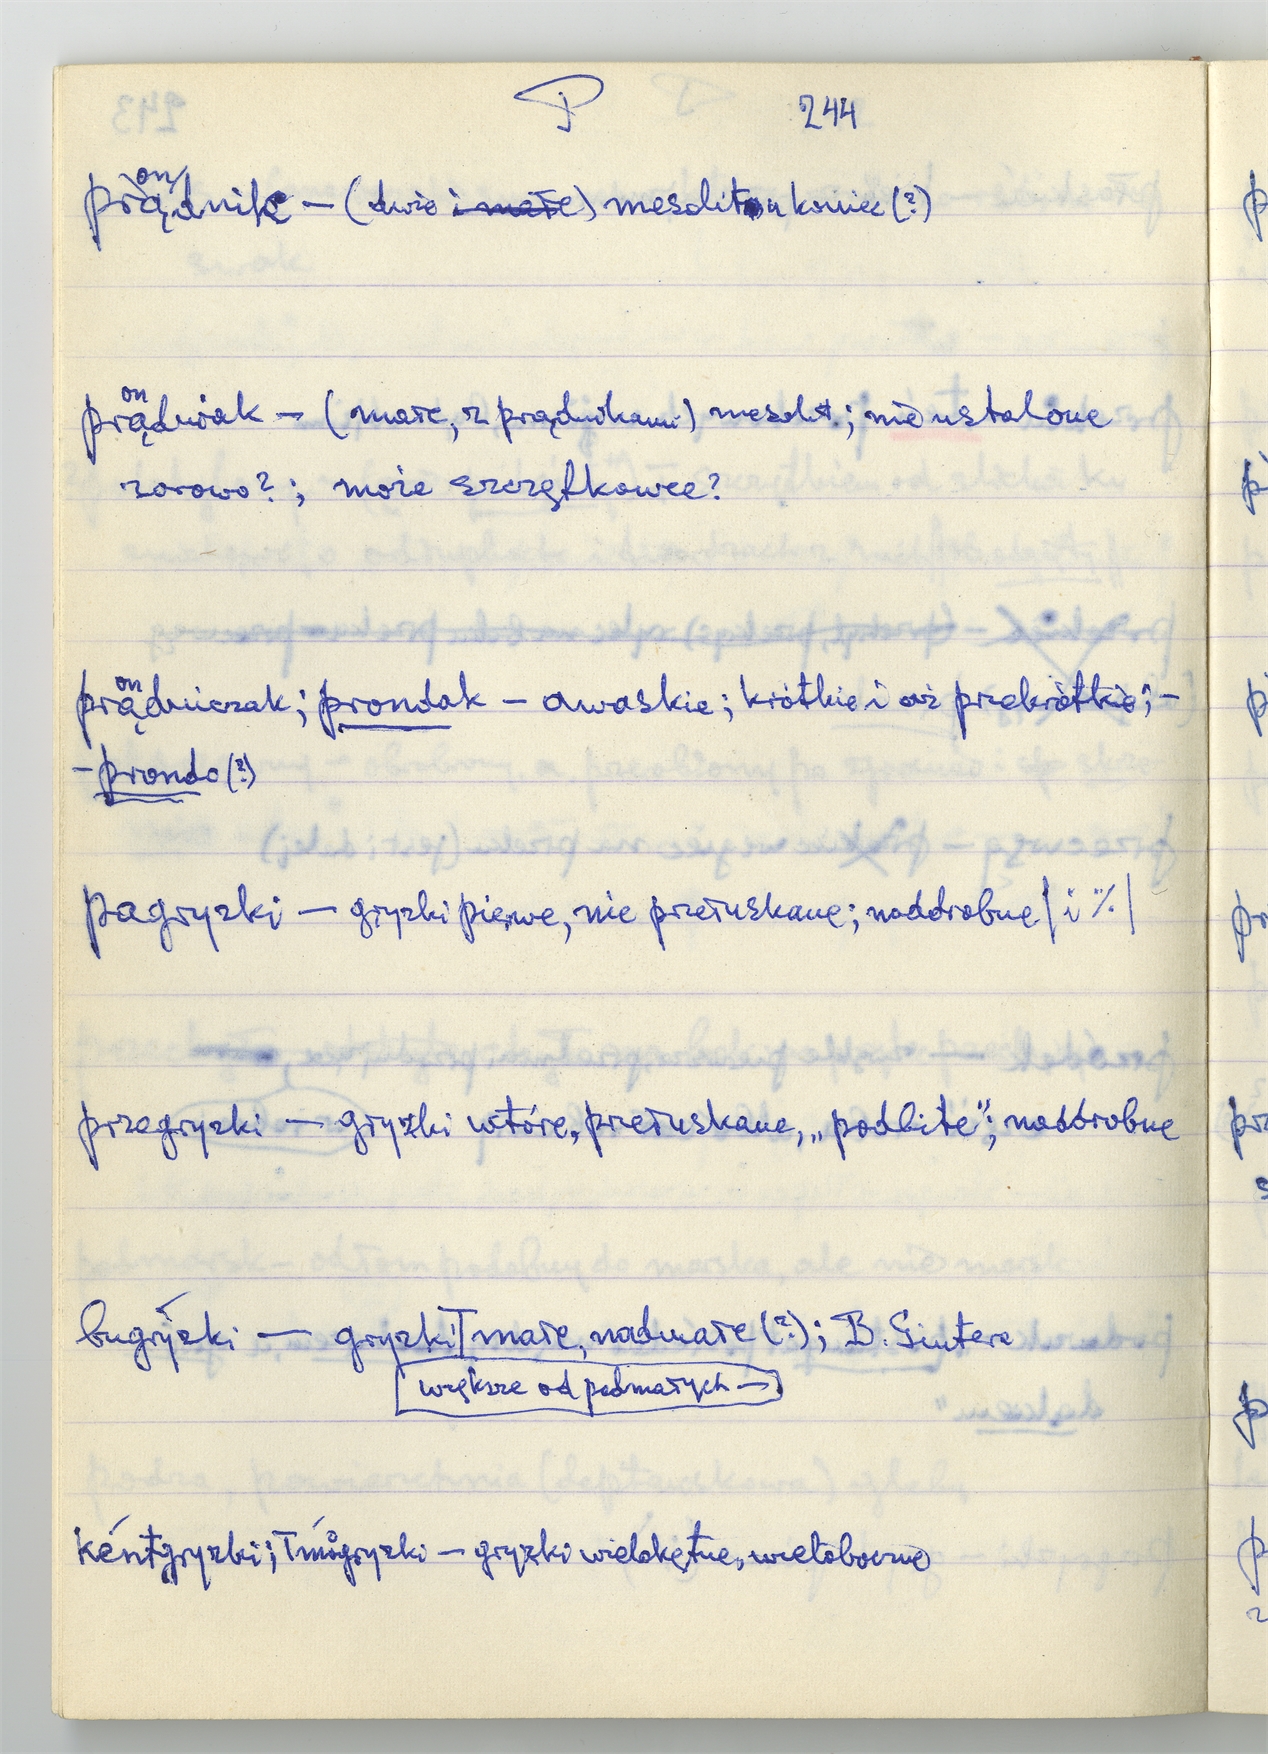 P 244
on
prądnik — (duże i małe) mezolit u koniec (?)
on
prądniak — (małe, z prądnikami) mezolit.; nie ustalone
zorowo?; może szczętkowce?
on
prądniczak; prondak — a waskie; krótkie i aż przekrótkie; —
— prondo (?)
pagryzki — gryzki pierwe, nie przełuskane; naddrobne | i % |
przegryzki — gryzki wtóre, przełuskane, „podbite"; naddrobne
bugryzki — gryzki małe, nadmałe (?); B. Gintera
większe od podmałych —
kentgryzki; gryzki — gryzki wielokętne, wieloboczne